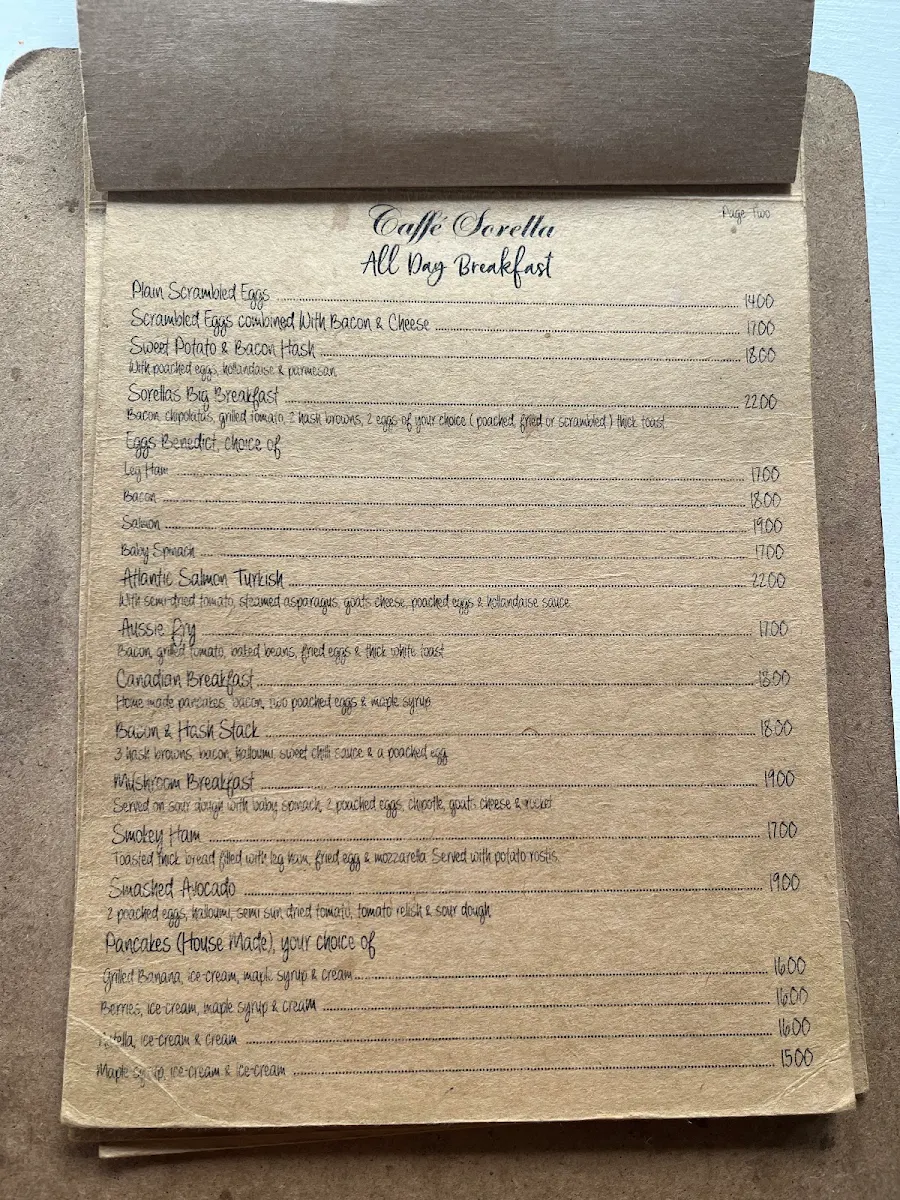 Page Two
Caffé Sorella
All Day Breakfast
Plain Scrambled Eggs 14.00
Scrambled Eggs combined With Bacon & Cheese 17.00
Sweet Potato & Bacon Hash 18.00
With poached eggs, hollandaise & parmesan
Sorellas Big Breakfast 22.00
Bacon, chipolatas, grilled tomato, 2 hash browns, 2 eggs of your choice ( poached, fried or scrambled ) thick toast
Eggs Benedict, choice of
Leg Ham 17.00
Bacon 18.00
Salmon 19.00
Baby Spinach 17.00
Atlantic Salmon Turkish 22.00
With semi-dried tomato, steamed asparagus, goats cheese, poached eggs & hollandaise sauce
Aussie Fry 17.00
Bacon, grilled tomato, baked beans, fried eggs & thick white toast
Canadian Breakfast 18.00
Home made pancakes, bacon, two poached eggs & maple syrup
Bacon & Hash Stack 18.00
3 hash browns, bacon, halloumi, sweet chilli sauce & a poached egg
Mushroom Breakfast 19.00
Served on sour dough with baby spinach, 2 poached eggs, chipotle, goats cheese & rocket
Smokey Ham 17.00
Toasted thick bread filled with leg ham, fried egg & mozzarella. Served with potato rostis
Smashed Avocado 19.00
2 poached eggs, halloumi, semi sun dried tomato, tomato relish & sour dough
Pancakes (House Made), your choice of
Grilled Banana, ice-cream, maple syrup & cream 16.00
Berries, ice-cream, maple syrup & cream 16.00
Nutella, ice-cream & cream 16.00
Maple syrup, ice-cream & ice-cream 15.00